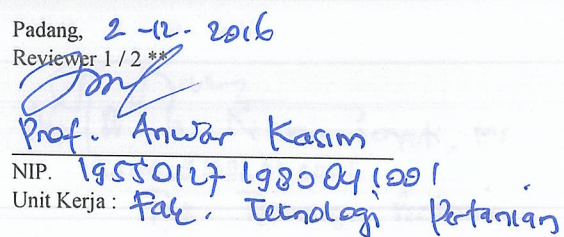 Padang, 2-12-2016
Reviewer 1 / 2 **
Prof. Anwar Kasim
NIP. 19550127 198004 1001
Unit Kerja : Fak. Teknologi Pertanian